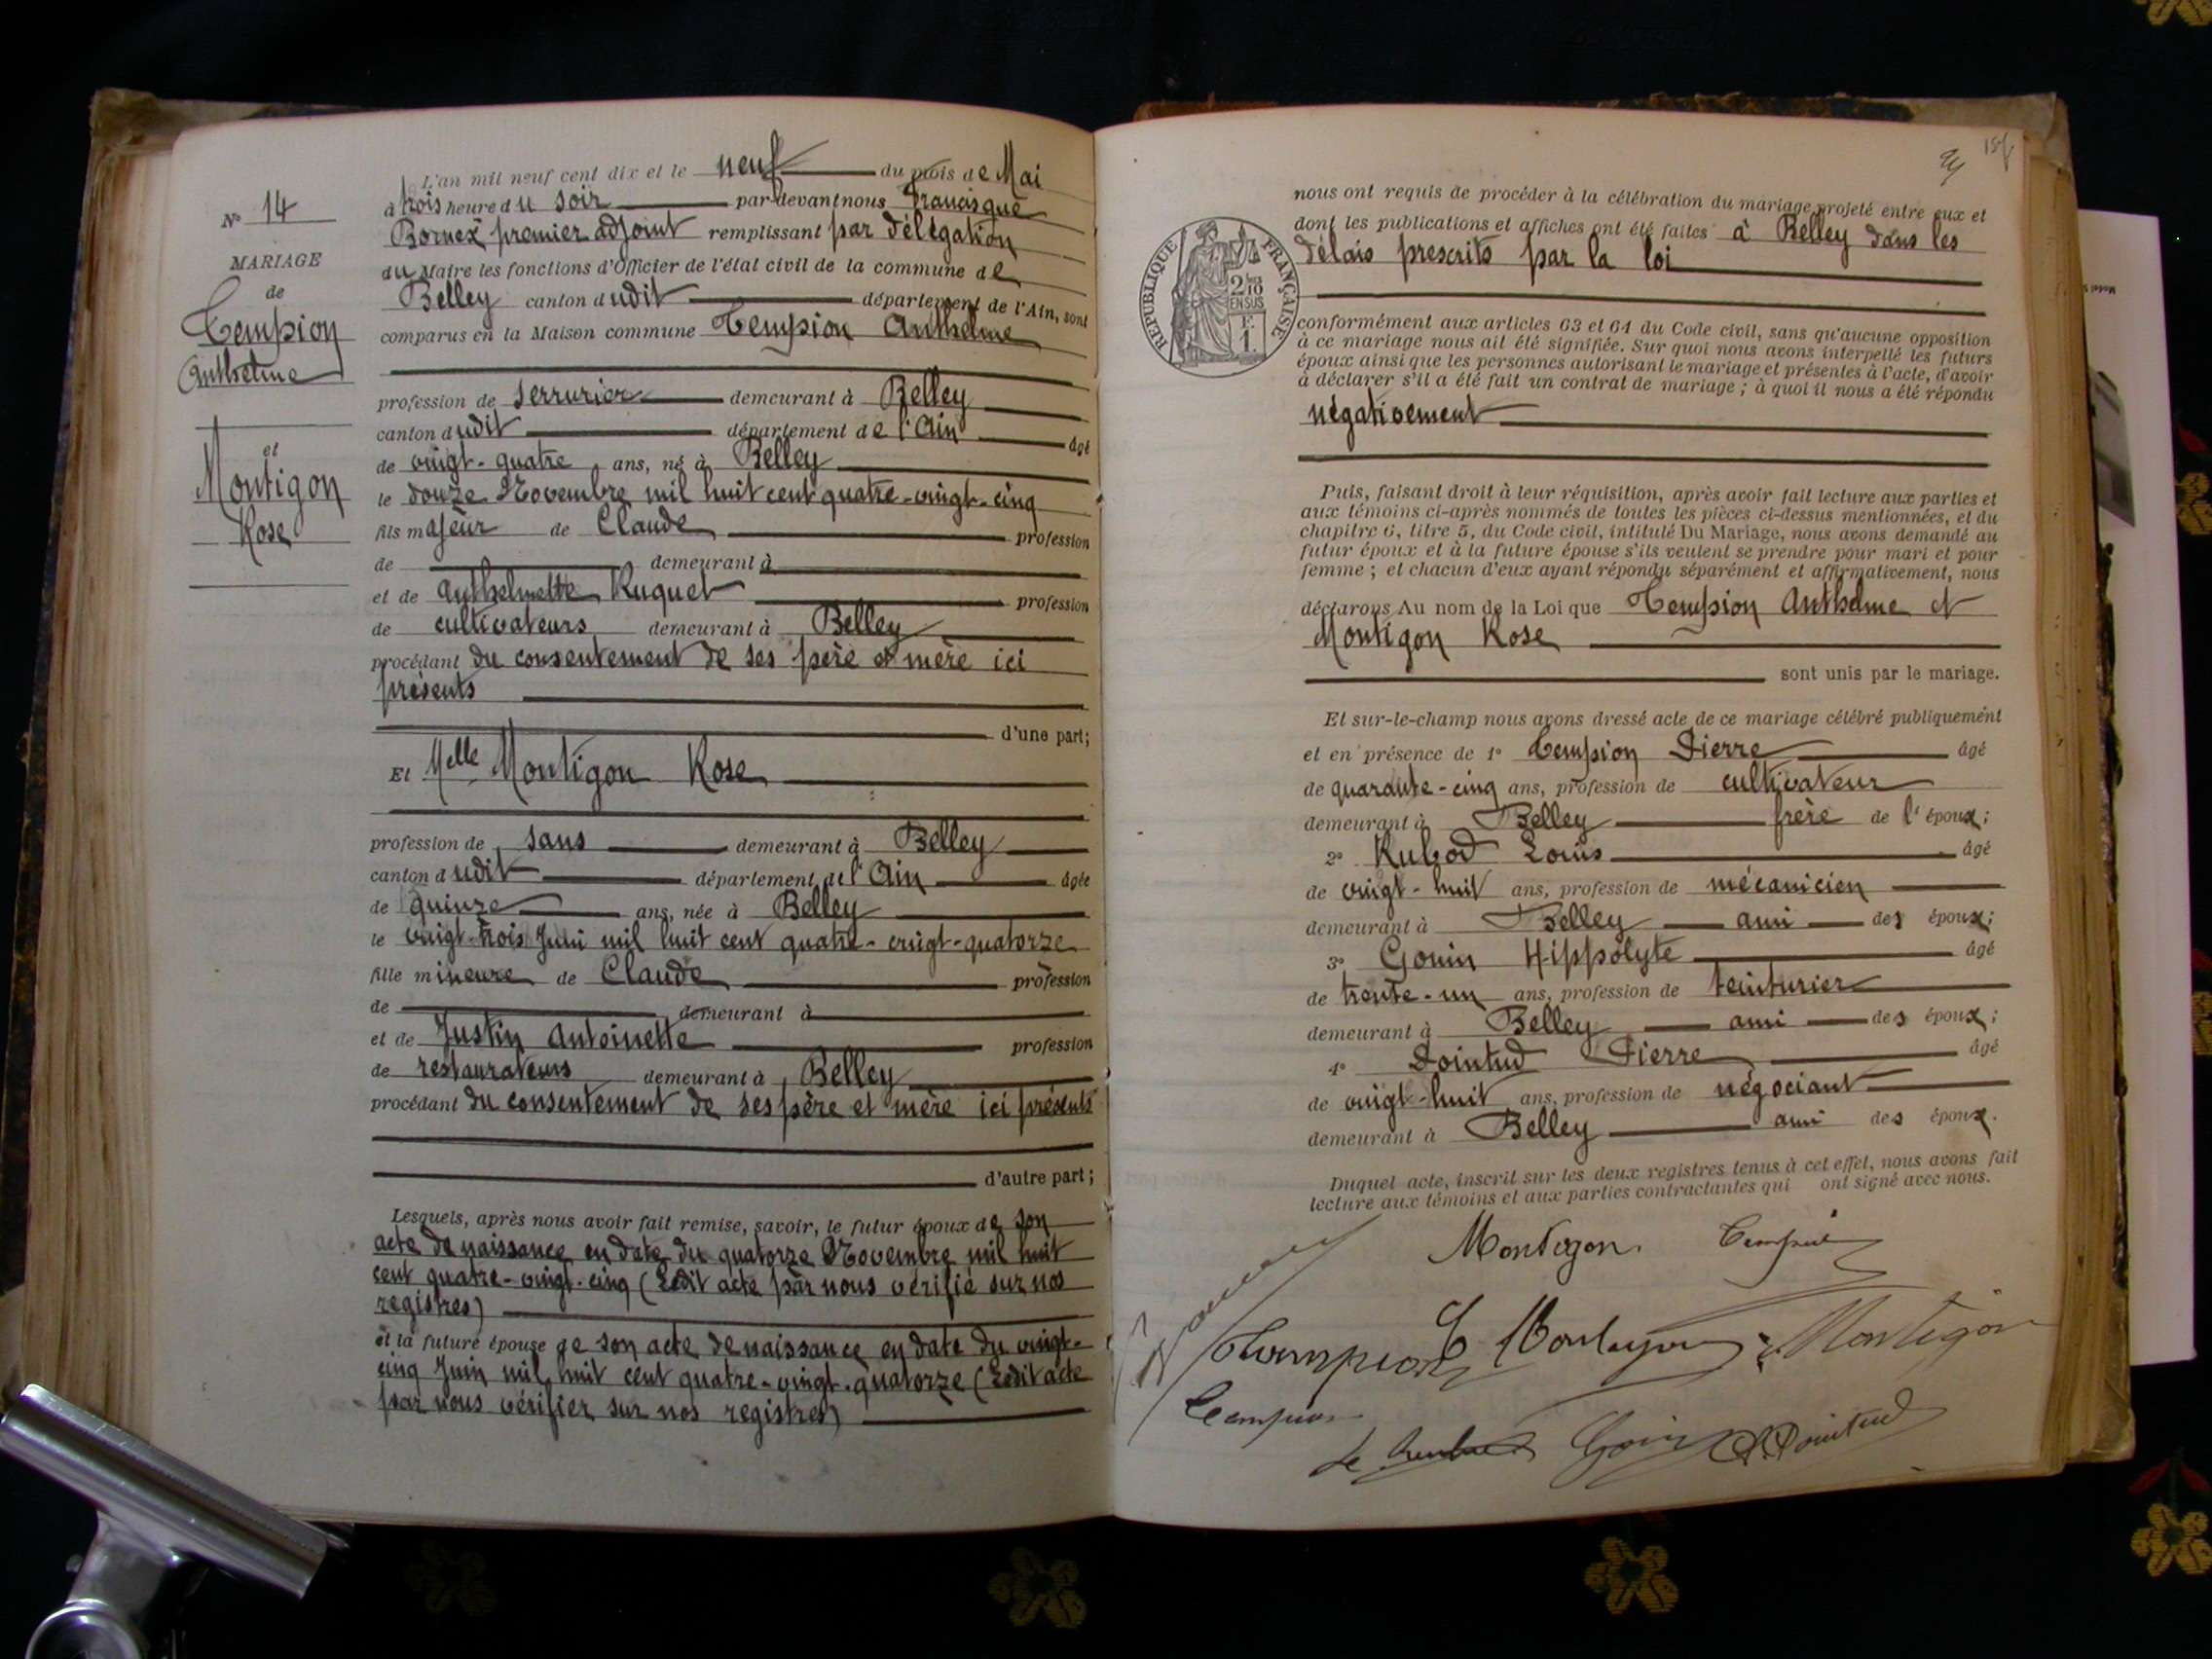 N° 14
MARIAGE
de
Tempion
Anthelme
et
Montigon
Rose
L'an mil neuf cent dix et le neuf du mois de Mai
à trois heure du soir par-devant nous Francisque
Bornex premier adjoint remplissant par délégation
du Maire les fonctions d'Officier de l'état civil de la commune de
Belley canton dudit département de l'Ain, sont
comparus en la Maison commune Tempion Anthelme
profession de serrurier demeurant à Belley
canton dudit département de l'Ain âgé
de vingt-quatre ans, né à Belley
le douze Novembre mil huit cent quatre-vingt-cinq
fils majeur de Claude profession
de demeurant à
et de Anthelmette Ruquet profession
de cultivateurs demeurant à Belley
procédant du consentement de ses père et mère ici
présents
d'une part;
Et Melle Montigon Rose
profession de sans demeurant à Belley
canton dudit département de l'Ain âgée
de quinze ans, née à Belley
le vingt-trois Juin mil huit cent quatre-vingt-quatorze
fille mineure de Claude profession
de demeurant à
et de Justin Antoinette profession
de restaurateurs demeurant à Belley
procédant du consentement de ses père et mère ici présents
d'autre part;
Lesquels, après nous avoir fait remise, savoir, le futur époux de son
acte de naissance en date du quatorze Novembre mil huit
cent quatre-vingt-cinq (Ledit acte par nous vérifié sur nos
registres)
et la future épouse de son acte de naissance en date du vingt-
cinq Juin mil huit cent quatre-vingt-quatorze (Ledit acte
par nous vérifier sur nos registres)
REPUBLIQUE FRANÇAISE
2/10
EN SUS
F.
1.
nous ont requis de procéder à la célébration du mariage projeté entre eux et
dont les publications et affiches ont été faites à Belley dans les
délais prescrits par la loi
conformément aux articles 63 et 64 du Code civil, sans qu'aucune opposition
à ce mariage nous ait été signifiée. Sur quoi nous avons interpellé les futurs
époux ainsi que les personnes autorisant le mariage et présentes à l'acte, d'avoir
à déclarer s'il a été fait un contrat de mariage ; à quoi il nous a été répondu
négativement
Puis, faisant droit à leur réquisition, après avoir fait lecture aux parties et
aux témoins ci-après nommés de toutes les pièces ci-dessus mentionnées, et du
chapitre 6, titre 5, du Code civil, intitulé Du Mariage, nous avons demandé au
futur époux et à la future épouse s'ils veulent se prendre pour mari et pour
femme ; et chacun d'eux ayant répondu séparément et affirmativement, nous
déclarons Au nom de la Loi que Tempion Anthelme et
Montigon Rose
sont unis par le mariage.
Et sur-le-champ nous avons dressé acte de ce mariage célébré publiquement
et en présence de 1° Tempion Pierre âgé
de quarante-cinq ans, profession de cultivateur
demeurant à Belley frère de l'époux;
2° Rubod Louis âgé
de vingt-huit ans, profession de mécanicien
demeurant à Belley ami des époux;
3° Gouin Hippolyte âgé
de trente-un ans, profession de teinturier
demeurant à Belley ami des époux;
4° Pointud Pierre âgé
de vingt-huit ans, profession de négociant
demeurant à Belley ami des époux.
Duquel acte, inscrit sur les deux registres tenus à cet effet, nous avons fait
lecture aux témoins et aux parties contractantes qui ont signé avec nous.
Montigon
Montigon
Pointud